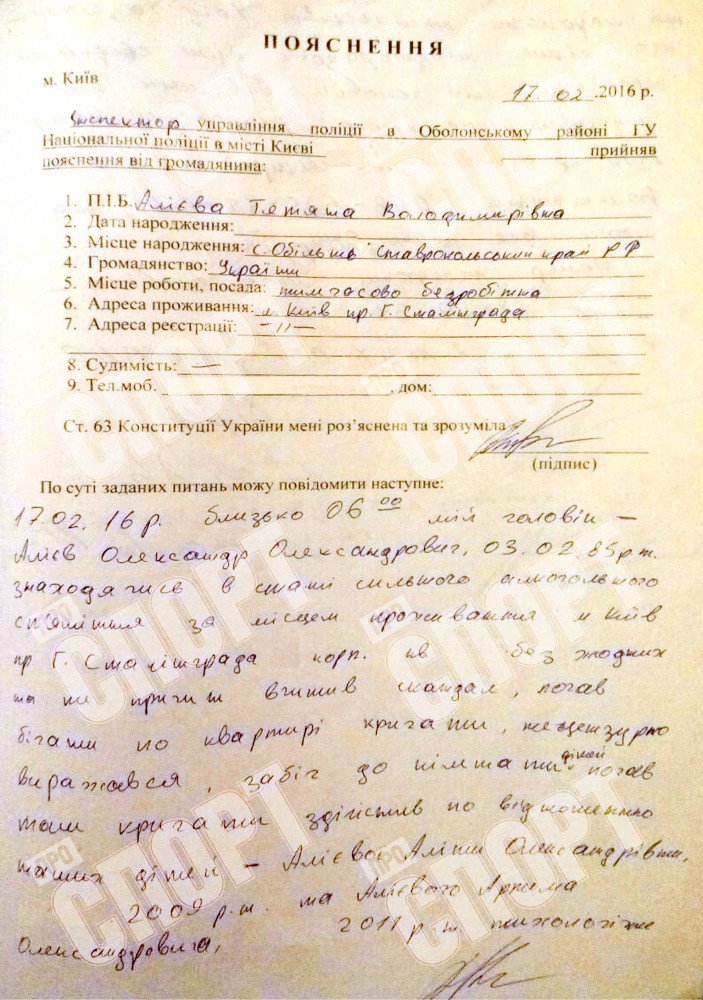 ПОЯСНЕННЯ
м. Київ
17.02.2016 р.
Інспектор управління поліції в Оболонському районі ГУ
Національної поліції в місті Києві прийняв
пояснення від громадянина:
1. П.І.Б. Алієва Тетяна Володимирівна
2. Дата народження:
3. Місце народження: с. Обільне Ставропольський край РФ
4. Громадянство: України
5. Місце роботи, посада: тимчасово безробітна
6. Адреса проживання: м. Київ пр. Г. Сталінграда
7. Адреса реєстрації: –//–
8. Судимість: —
9. Тел.моб. , дом:
Ст. 63 Конституції України мені роз’яснена та зрозуміла
(підпис)
По суті заданих питань можу повідомити наступне:
17.02.16 р. близько 06 00 мій чоловік –
Алієв Олександр Олександрович, 03.02.85 р.н.
знаходячись в стані сильного алкогольного
сп'яніння за місцем проживання м Київ
пр Г. Сталінграда корп. кв без жодних
на те причин вчинив скандал, почав
бігати по квартирі кричати, нецензурно
виражався, забіг до кімнати дітей почав
там кричати здійснив по відношенню
наших дітей – Алієвої Аліни Олександрівни,
2009 р.н. та Алієвого Артема
Олександровича, 2011 р.н. психологічне
ПРО СПОРТ